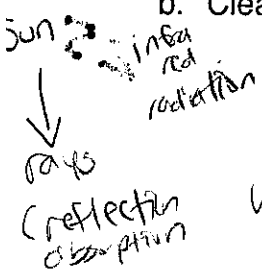 b. Clea
Sun
infra
red
radiation
rays
(reflection
absorption